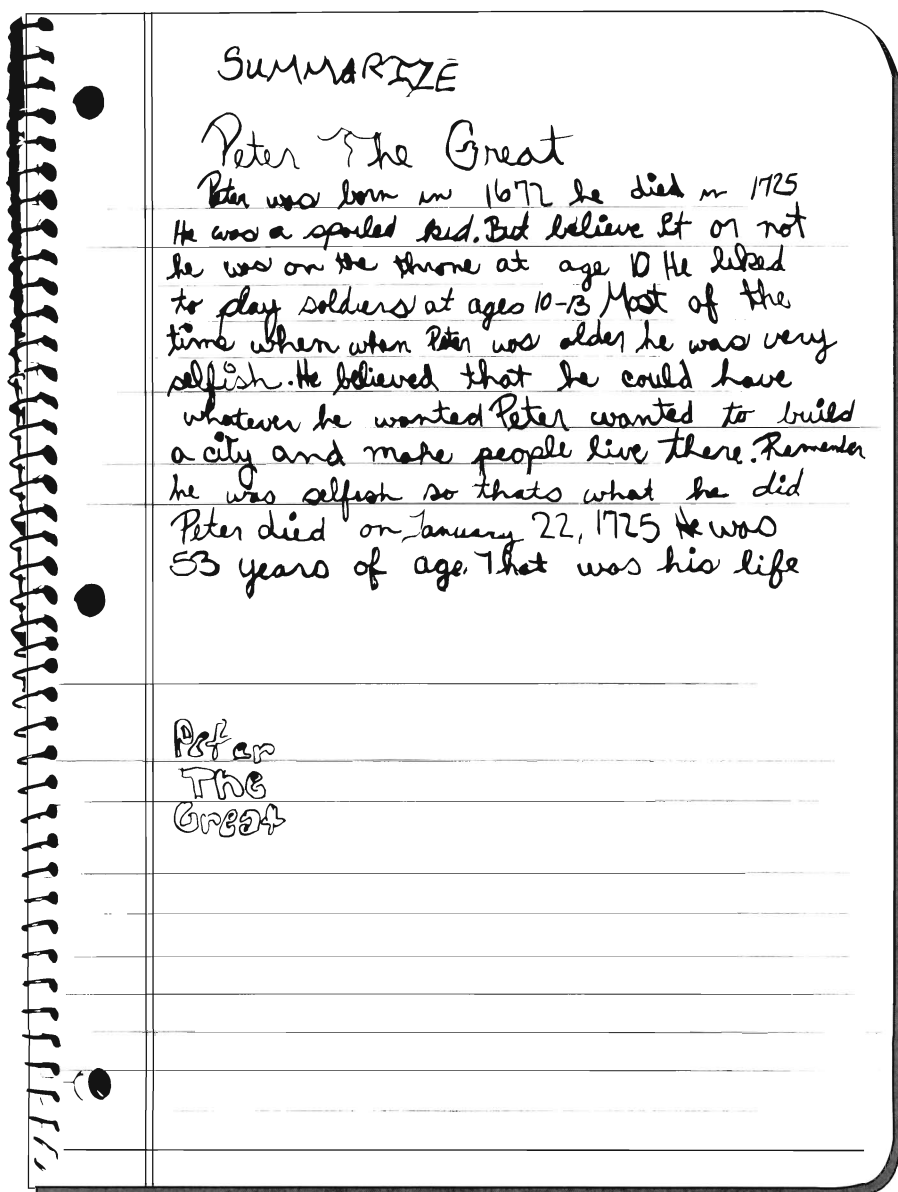 SUMMARIZE
Peter The Great
Peter was born in 1672 he died in 1725
He was a spoiled kid. But believe It or not
he was on the throne at age 10 He liked
to play soldiers at ages 10-13 Most of the
time when when Peter was older he was very
selfish. He believed that he could have
whatever he wanted Peter wanted to build
a city and make people live there. Remember
he was selfish so thats what he did
Peter died on January 22, 1725 He was
53 years of age. That was his life
Peter
The
Great